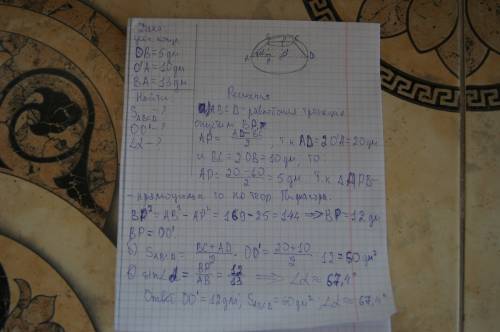 Дано
усеч. конус
OB=5дм
O'A=10дм
BA=13дм
Найти
S ABCD
OO'-?
∠α-?
Решение
а) ABCD - равнобокая трапеция
опустим BP
AP = AD-BC / 2, т.к AD=2O'A=20дм
и BC=2OB=10дм, то
AP = 20-10 / 2 = 5дм т.к △APB-
-прямоуг то по теор. Пифагора
BP²=AB²-AP²=169-25=144 ⟹ BP=12дм
BP=OO'
б) S ABCD = BC+AD / 2 · OO' = 20+10 / 2 · 12 = 60дм²
в) sin∠α = BP / AB = 12 / 13 ⟹ ∠α≈67,4°
Ответ OO'=12дм, S ABCD=60дм² ∠α≈67,4°